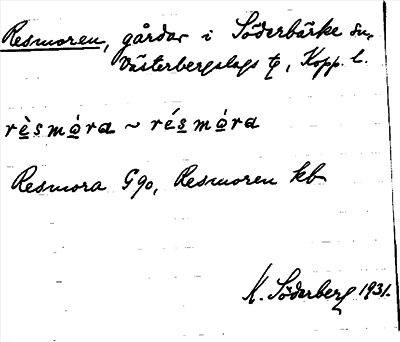 Resmoren, gårdar i Söderbärke sn,
Västerbergslags tg, Kopp. l.
rèsmòra ~ résmóra
Resmora G90, Resmoren kb
K. Söderberg 1931.